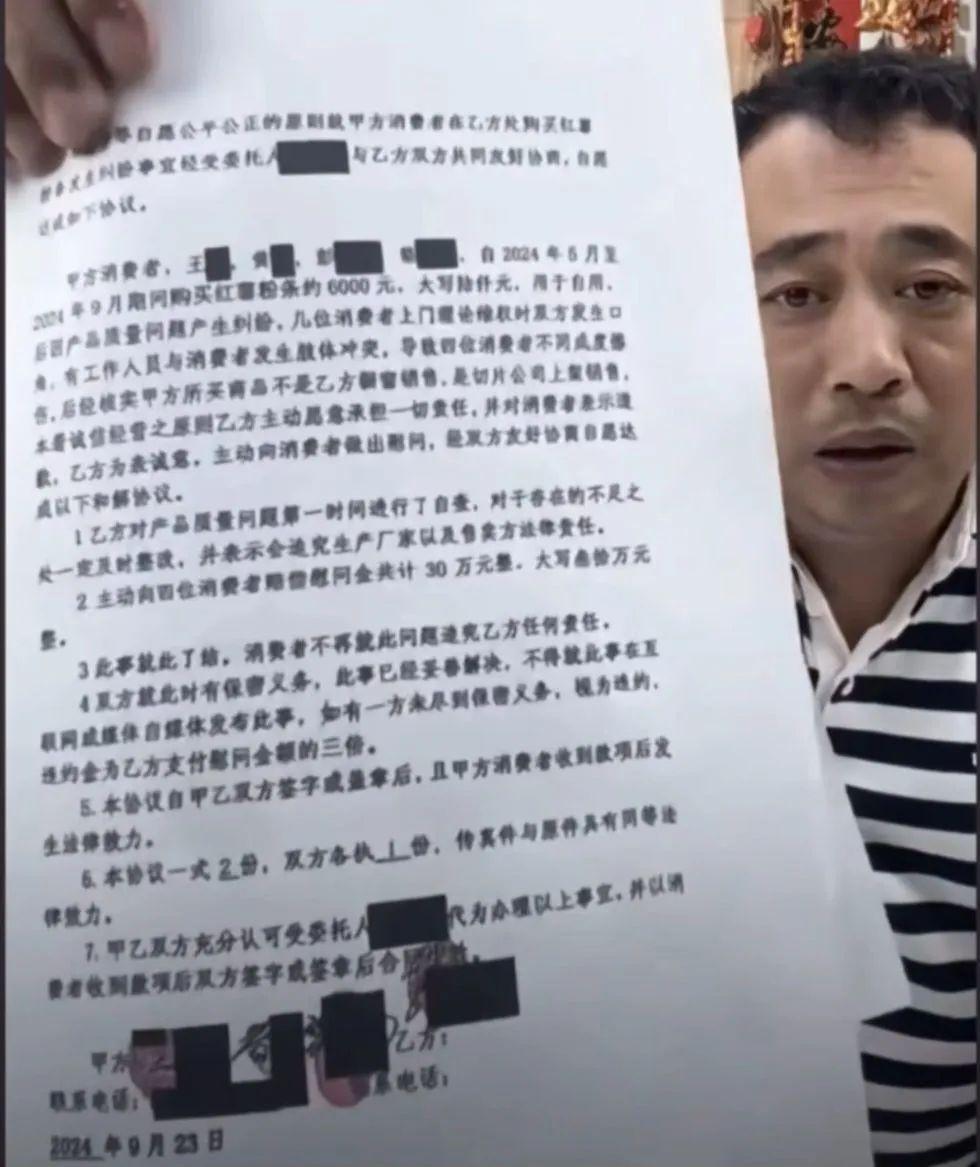 等自愿公平公正的原则就甲方消费者在乙方处购买红薯
粉条发生纠纷事宜经受委托人 与乙方双方共同友好协商，自愿
达成如下协议。
甲方消费者，王 ，黄 ，彭 ，自2024年5月至
2024年9月期间购买红薯粉条约6000元，大写陆仟元，用于自用，
后因产品质量问题产生纠纷，几位消费者上门理论维权时双方发生口
角，有工作人员与消费者发生肢体冲突，导致四位消费者不同成度伤
害，后经核实甲方所买商品不是乙方橱窗销售，是切片公司上架销售，
本着诚信经营之原则乙方主动愿意承担一切责任，并对消费者表示道
歉，乙方为表诚意，主动向消费者做出慰问，经双方友好协商自愿达
成以下和解协议。
1乙方对产品质量问题第一时间进行了自查，对于存在的不足之
处一定及时整改，并表示会追究生产厂家以及售卖方法律责任。
2主动向四位消费者赔偿慰问金共计30万元整，大写叁拾万元
整。
3此事就此了结，消费者不再就此问题追究乙方任何责任。
4双方就此时有保密义务，此事已经妥善解决，不得就此事在互
联网或媒体自媒体发布此事，如有一方未尽到保密义务，视为违约，
违约金为乙方支付慰问金额的三倍。
5.本协议自甲乙双方签字或盖章后，且甲方消费者收到款项后发
生法律效力。
6.本协议一式2份，双方各执1份，传真件与原件具有同等法
律效力。
7.甲乙双方充分认可受委托人 代为办理以上事宜，并以消
费者收到款项后双方签字或签章后合同
甲方 乙方：
联系电话： 系电话：
2024年9月23日